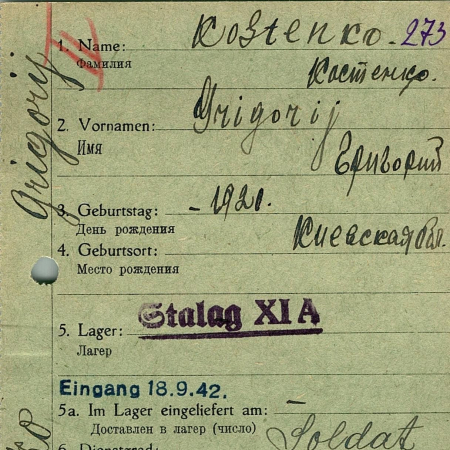 1. Name: Kostenko. 273
Фамилия Костенко.
2. Vornamen: Grigorij
Имя Григорий
Grigorij
3. Geburtstag: - 1920.
День рождения
4. Geburtsort: Киевская
Место рождения
5. Lager: Stalag XI A
Лагер
Eingang 18.9.42.
5a. Im Lager eingeliefert am:
Доставлен в лагер (число)
Soldat
6. Dienstgrad: